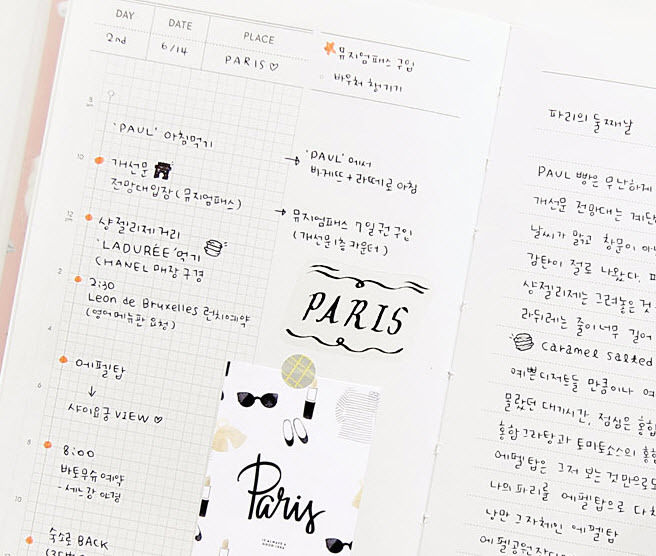 DAY
DATE
PLACE
2nd
6/14
PARIS♡
뮤지엄패스 구입
바우처 챙기기
8
am
'PAUL' 아침먹기
10
개선문
전망대입장(뮤지엄패스)
12
pm
샹젤리제거리
'LADURÉE'먹기
CHANEL매장구경
2
2:30
Leon de Bruxelles 런치예약
(영어메뉴판 요청)
4
에펠탑
↓
샤이요궁 VIEW ♡
6
8
8:00
바토무슈예약
-세느강 야경
10
숙소로 BACK
→ 'PAUL'에서
바게뜨+라떼로 아침
→ 뮤지엄패스 구입
(개선문1층 카운터)
PARIS
Paris
파리의 둘째날
PAUL 빵은 무난하게
개선문 전망대는 계단
날씨가 맑고 창문이
감탄이 절로 나왔다.
샹젤리제는 그려놓은 것
라뒤레는 줄이너무 길어
caramel salted
예쁜디저트들 만큼이나
몰랐던 대기시간, 점심은 홍합
홍합그라탕과 토마토소스의 홍합
에펠탑은 그저 보는 것만으로도
나의 파리를 에펠탑으로 다
낭만 그자체인 에펠탑
에펠공원